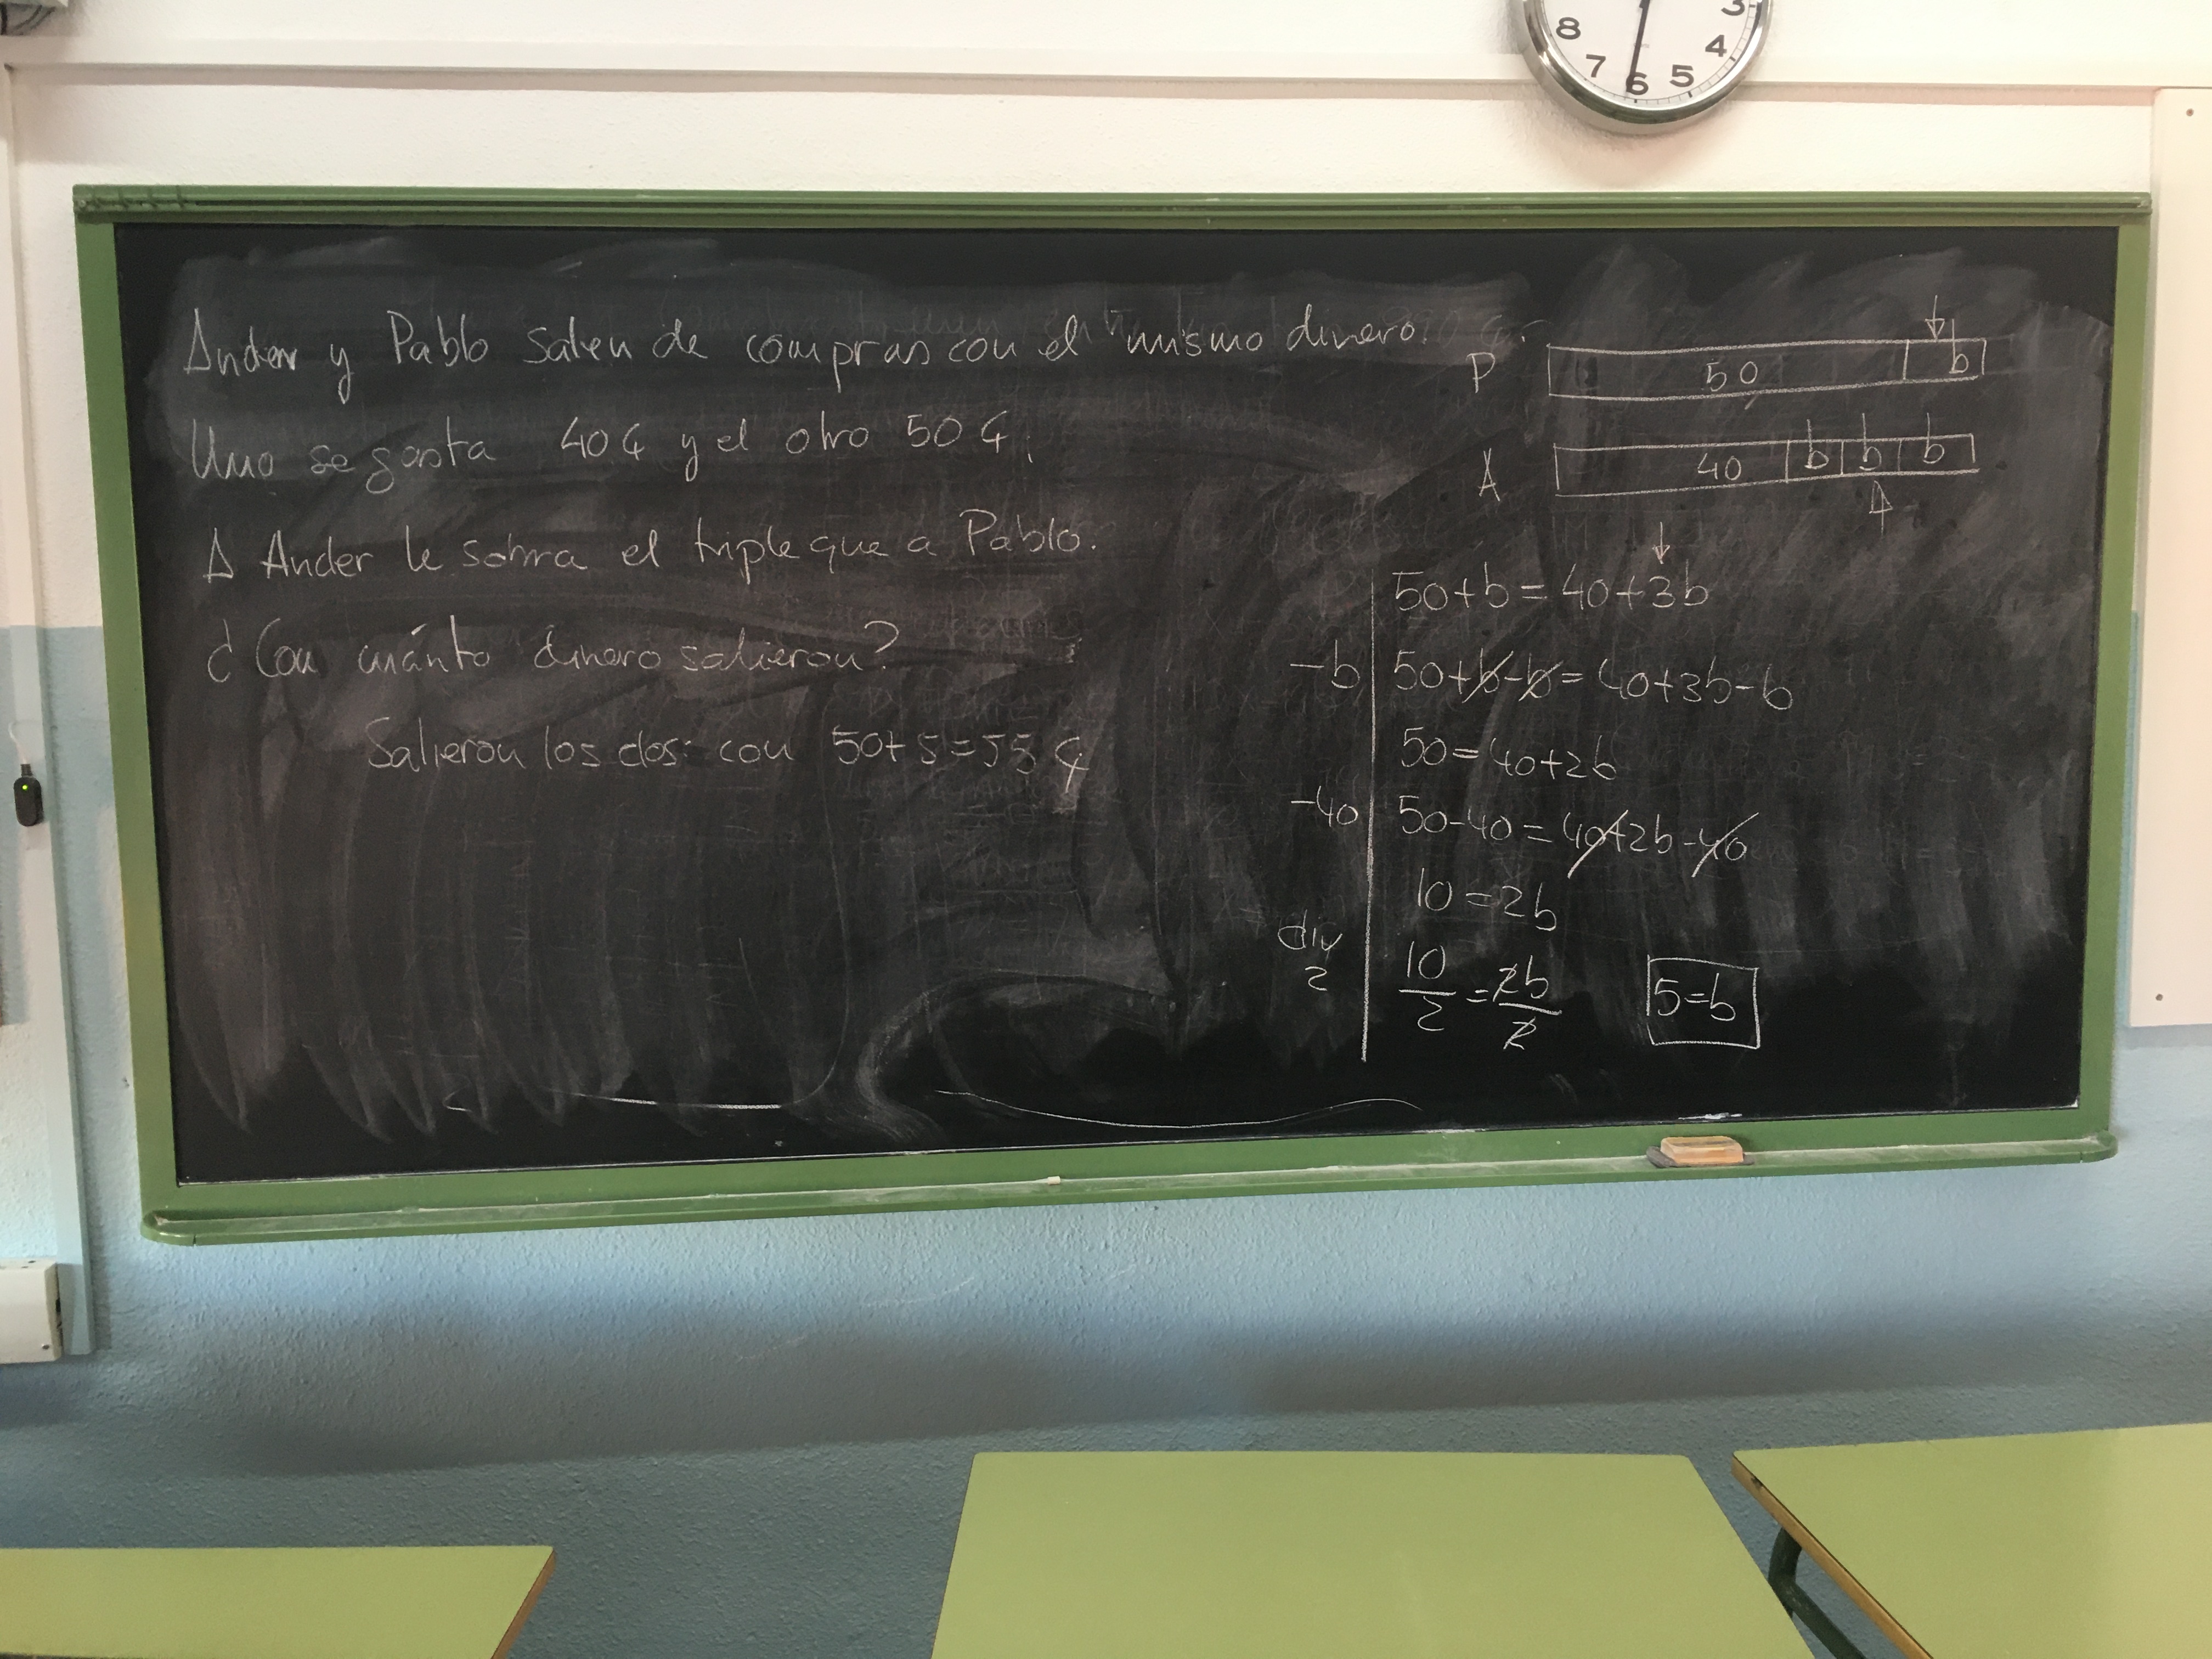 Ander y Pablo salen de compras con el mismo dinero.
Uno se gasta 40 € y el otro 50 €.
A Ander le sobra el triple que a Pablo.
¿Con cuánto dinero salieron?
Salieron los dos con 50+5=55 €
P 50 b
A 40 b b b
50+b=40+3b
-b 50+b-b=40+3b-b
50=40+2b
-40 50-40=40+2b-40
10=2b
div 2 10/2=2b/2 5=b
8 7 6 5 4 3